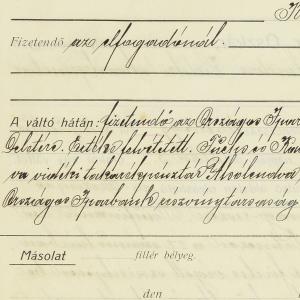 Fizetendő az elfogadónál.
A váltó hátán: fizetendő az Országos Ipar
Érték felvétetett. Fuchs és
va vidéki takarékpénztár Alsólendva
Országos Iparbank részvénytársaság
Másolat fillér bélyeg.
den